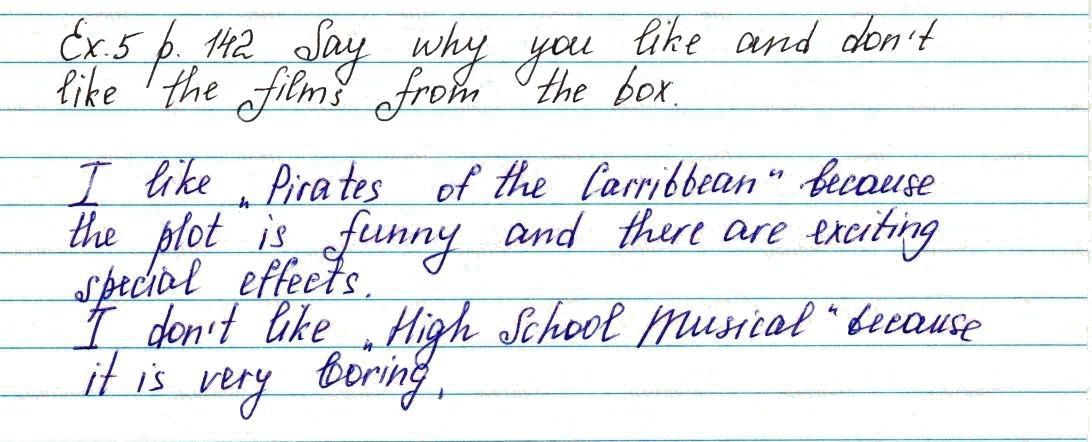 Ex.5 p. 142 Say why you like and don't
like the films from the box.
I like „Pirates of the Carribbean“ because
the plot is funny and there are exciting
special effects.
I don't like „High School Musical“ because
it is very boring.